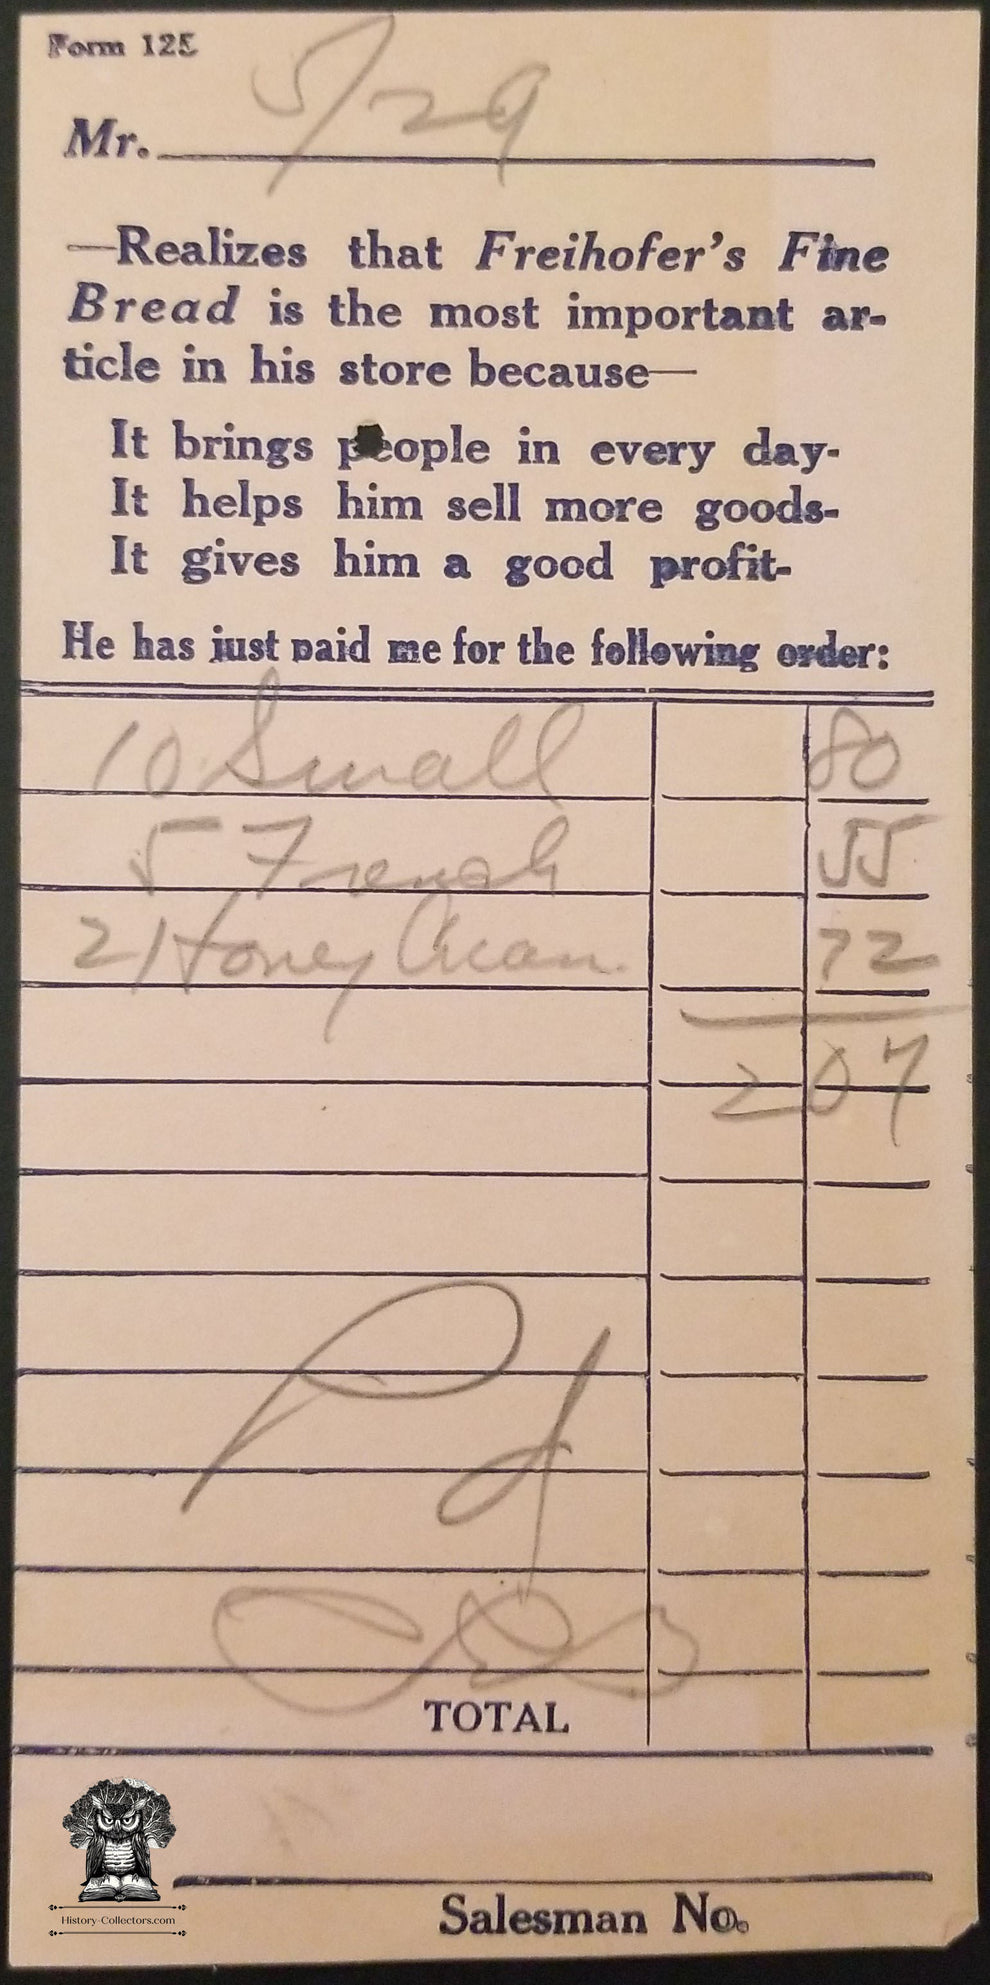 Form 125
5/29
Mr.
—Realizes that Freihofer's Fine
Bread is the most important ar-
ticle in his store because—
It brings people in every day-
It helps him sell more goods-
It gives him a good profit-
He has just paid me for the following order:
10 Small 80
5 French 55
2 Honey 72
207
Pd
TOTAL
History-Collectors.com
Salesman No.